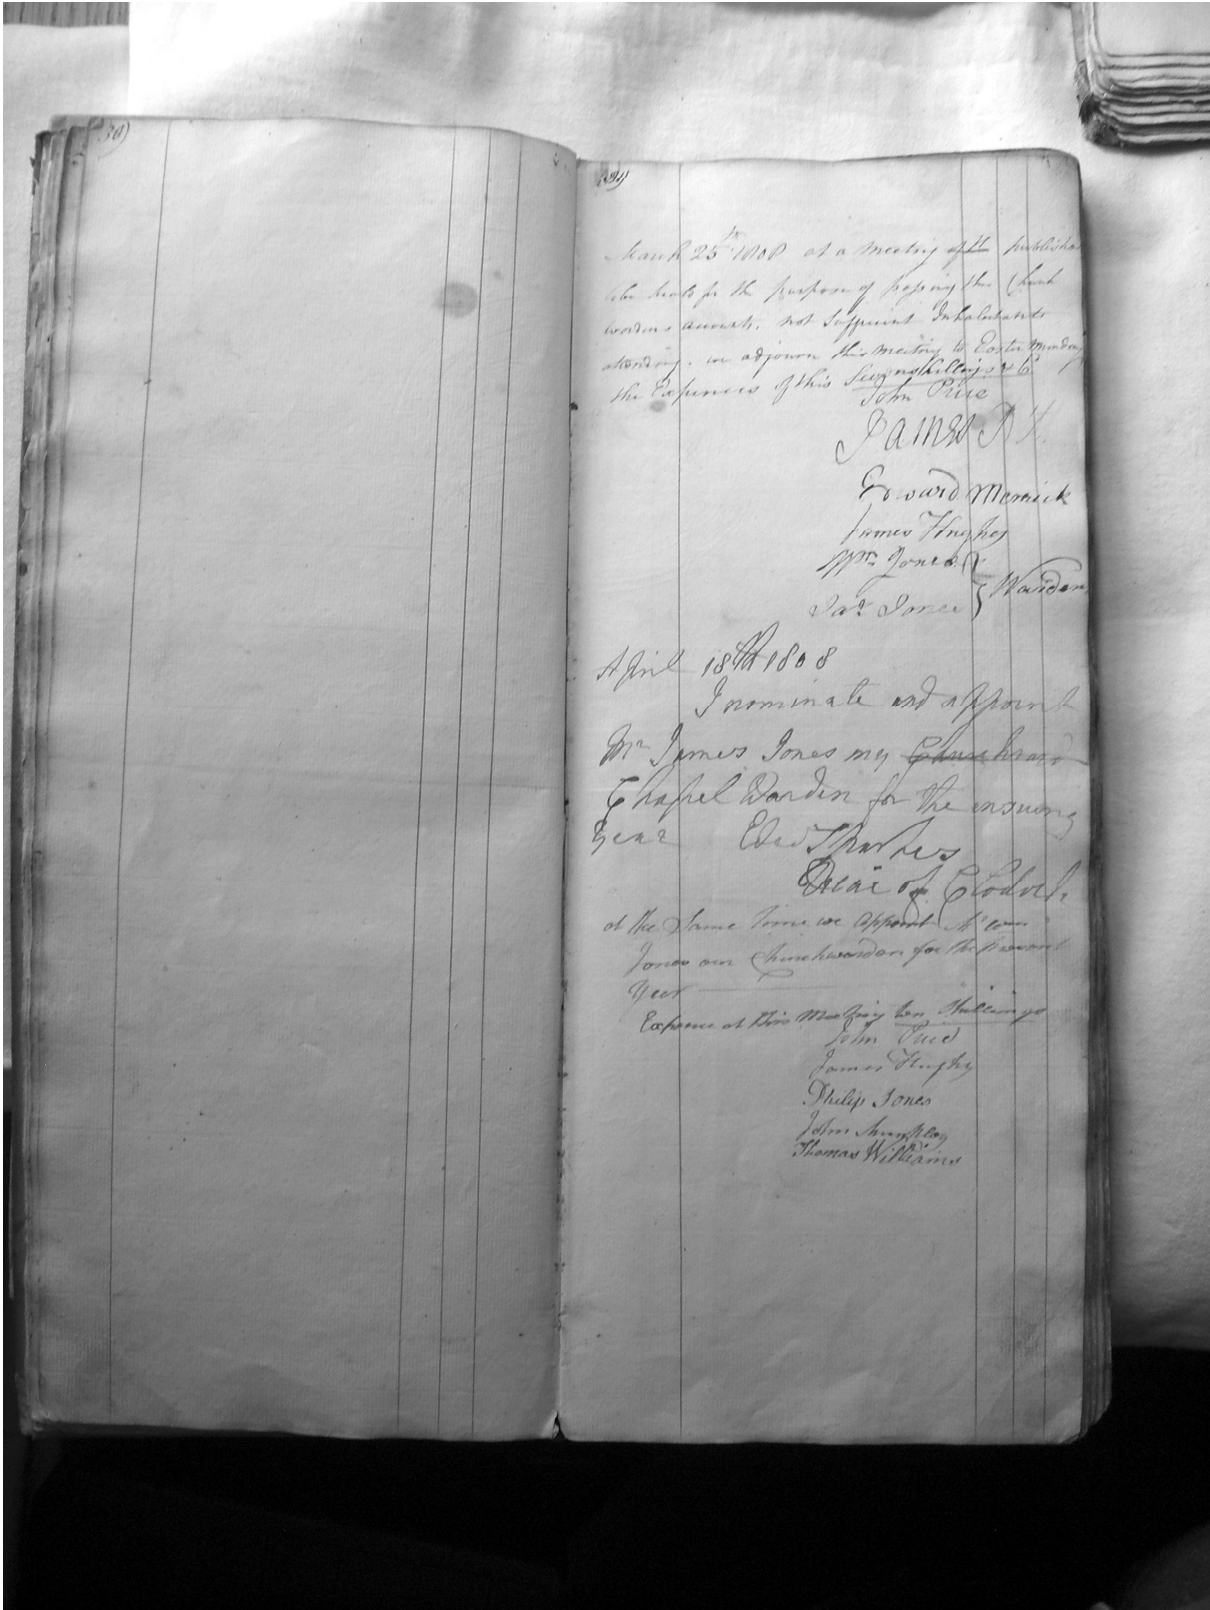 30)
(31)
March 25th 1808 at a Meeting
for the purpose of passing the Church
wardens accounts. not sufficient Inhabitants
attending. we adjourn this meeting to Easter Monday
the Expences of this Seven shillings & 6d
John Price
James
Edward Merrick
James Hughes
Wm Jones
Jas Jones } Warden
April 18th 1808
I nominate and appoint
Mr James Jones my
Chapel Warden for the insuing
Year Edwd
Vicar of Clodock
at the Same time we appoint Mr Wm
Jones our Churchwarden for the present
Year
Expence at this Meeting ten Shillings
John Price
James Hughes
Philip Jones
John
Thomas Williams